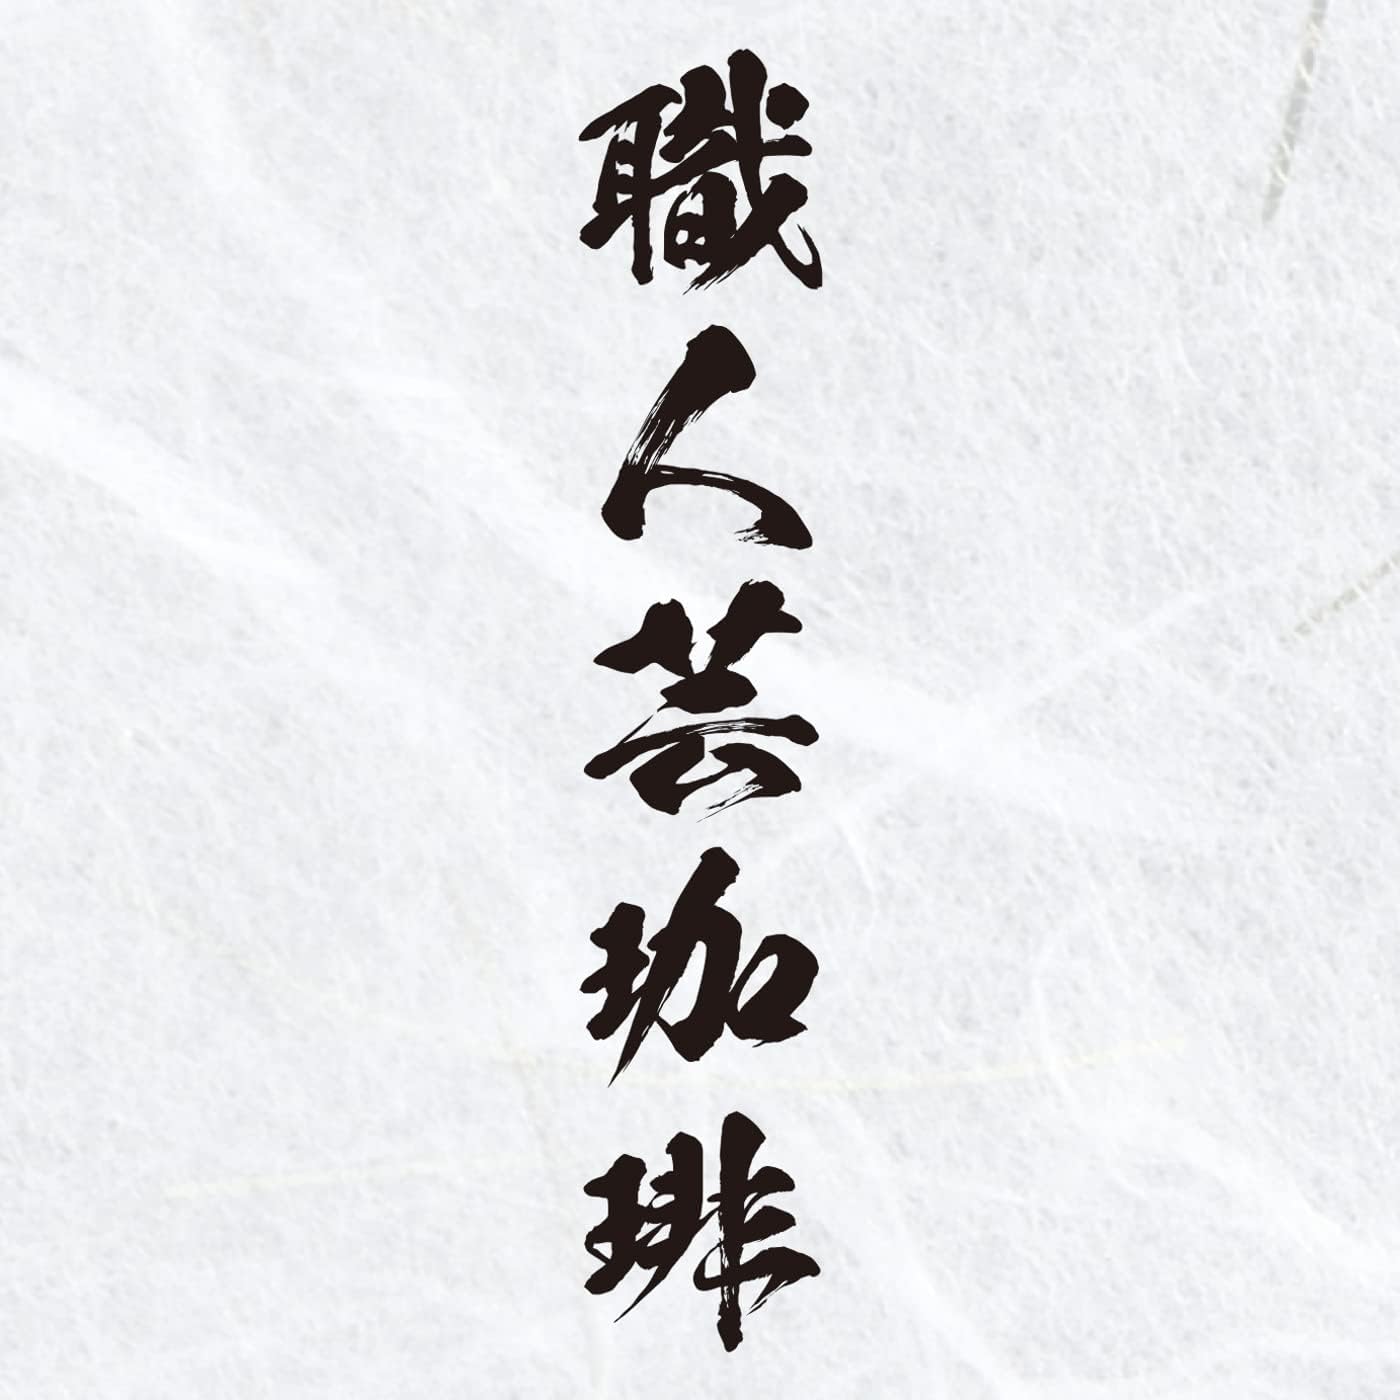 職人芸珈琲